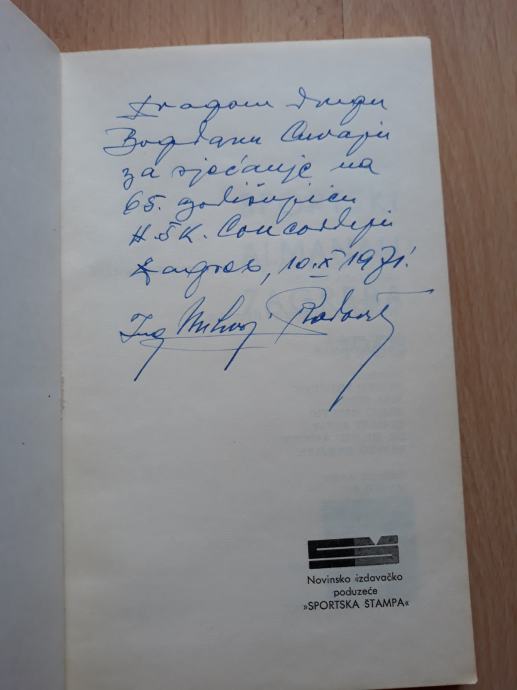 Dragom drugu
Bogdanu Cuvaju
za sjećanje na
65. godišnjicu
H.ŠK. Concordije
Zagreb, 10.X 1971.
Ing
Novinsko izdavačko
poduzeće
»SPORTSKA ŠTAMPA«